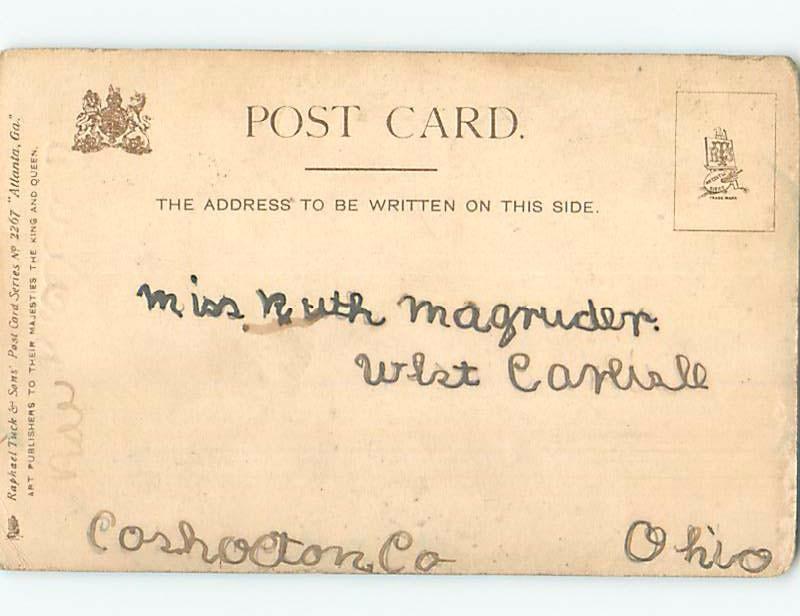 POST CARD.
THE ADDRESS TO BE WRITTEN ON THIS SIDE.
Miss Ruth Magruder.
West Carlisle
Coshocton, Co Ohio
Raphael Tuck & Sons' Post Card Series Nº 2267 "Atlanta, Ga."
ART PUBLISHERS TO THEIR MAJESTIES THE KING AND QUEEN.
TRADE MARK